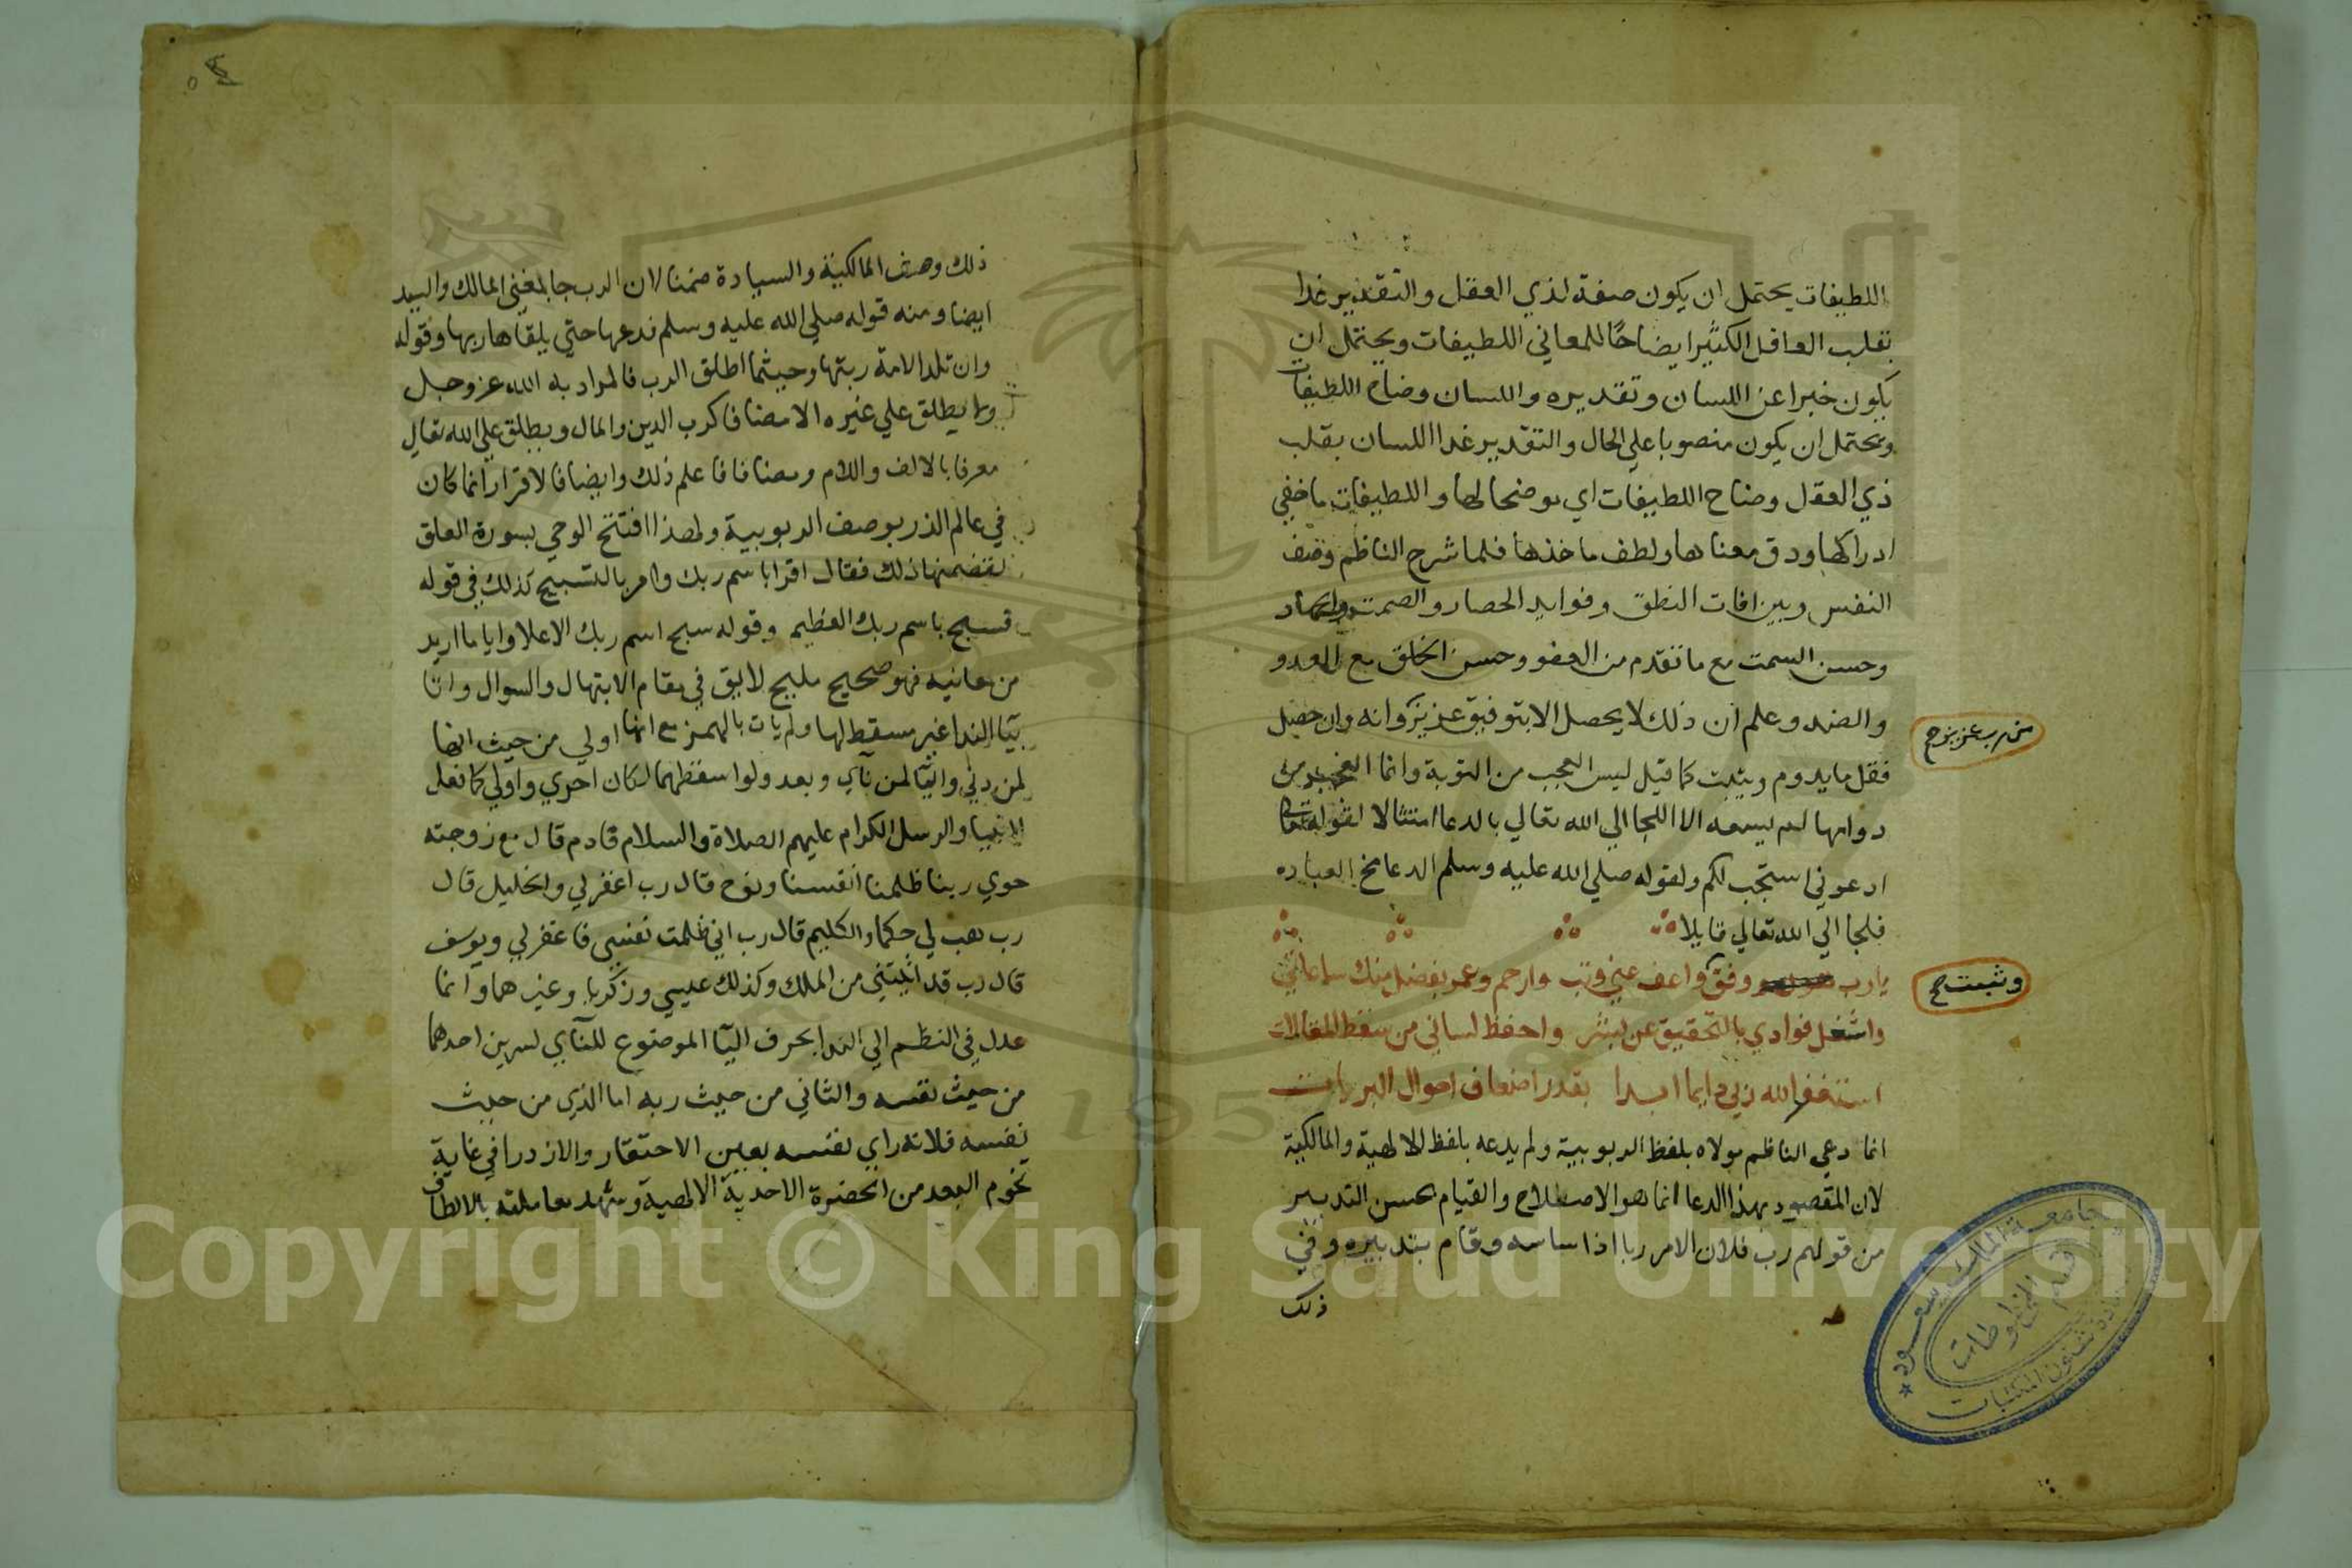 اللطيفات يحتمل ان يكون صفة لذي العقل والتقدير غدا
بقلب العاقل الكثير ايضاحًا للمعاني اللطيفات ويحتمل ان
يكون خبرا عن اللسان وتقديره واللسان وضاح اللطيفات
ويحتمل ان يكون منصوبا علي الحال والتقدير غدا اللسان بقلب
ذي العقل وضاح اللطيفات اي موضحا لها واللطيفات ما خفي
ادراكها ودق معناها ولطف ماخذها فلما شرح الناظم وصف
النفس وبين افات النطق وفوايد الحصار والصمت
وحسن السمت مع ما تقدم من العفو وحسن الخلق مع العدو
والضد وعلم ان ذلك لا يحصل الا بتوفيق عزيز وانه وان حصل
من رب عزيز صح
فقل ما يدوم ويثبت كما قيل ليس العجب من التوبة وانما العجب من
دوامها لم يسعه الا اللجا الي الله تعالي بالدعا امتثالا لقوله تعالي
ادعوني استجب لكم ولقوله صلي الله عليه وسلم الدعا مخ العباده
فلجا الي الله تعالي قايلا
يا رب ووفق واعف عني وتب وارحم وعمر بفضل منك ساعاتي
وثبت صح
واشغل فوادي بالتحقيق عن بشر واحفظ لساني من سقط المقالات
استغفر الله ربي دايما ابدا بقدر اضعاف احوال البريات
انما دعي الناظم مولاه بلفظ الربوبية ولم يدعه بلفظ الالهية والمالكية
لان المقصود بهذا الدعا انما هو الاصطلاح والقيام بحسن التدبير
من قولهم رب فلان الامر ربا اذا ساسه وقام بتدبيره وفي
ذلك
جامعة الملك سعود
قسم المخطوطات
عمادة شئون المكتبات
ذلك وصف المالكية والسيادة ضمنا لان الرب جا بمعني المالك والسيد
ايضا ومنه قوله صلي الله عليه وسلم فدعها حتي يلقاها ربها وقوله
وان تلد الامة ربتها وحيثما اطلق الرب فالمراد به الله عز وجل
ولا يطلق علي غيره الا مضافا كرب الدين والمال ويطلق علي الله تعالي
معرفا بالالف واللام ومضافا فاعلم ذلك وايضا فالاقرار انما كان
في عالم الذر بوصف الربوبية ولهذا افتتح الوحي بسورة العلق
لتضمنها ذلك فقال اقرا باسم ربك وامر بالتسبيح كذلك في قوله
فسبح باسم ربك العظيم وقوله سبح اسم ربك الاعلا وايا ما اريد
من معانيه فهو صحيح مليح لايق في مقام الابتهال والسوال واتا
بيا الندا غير مسقط لها ولم يات بالهمز مع انها اولي من حيث انها
لمن دني واليا لمن نآي وبعد ولو اسقطهما لكان احري واولي كما فعل
الانبيا والرسل الكرام عليهم الصلاة والسلام فادم قال مع زوجته
حوي ربنا ظلمنا انفسنا ونوح قال رب اغفر لي والخليل قال
رب هب لي حكما والكليم قال رب اني ظلمت نفسي فاغفر لي ويوسف
قال رب قد اتيتني من الملك وكذلك عيسي وزكريا وغيرهما وانما
عدل في النظم الي الندا بحرف اليا الموضوع للنآي لسرين احدهما
من حيث نفسه والثاني من حيث ربه اما الذي من حيث
نفسه فلانه راي نفسه بعين الاحتقار والازدرا في غاية
تخوم البعد من الحضرة الاحدية الالهية وشهد معاملته بالالطاف
Copyright © King Saud University
195